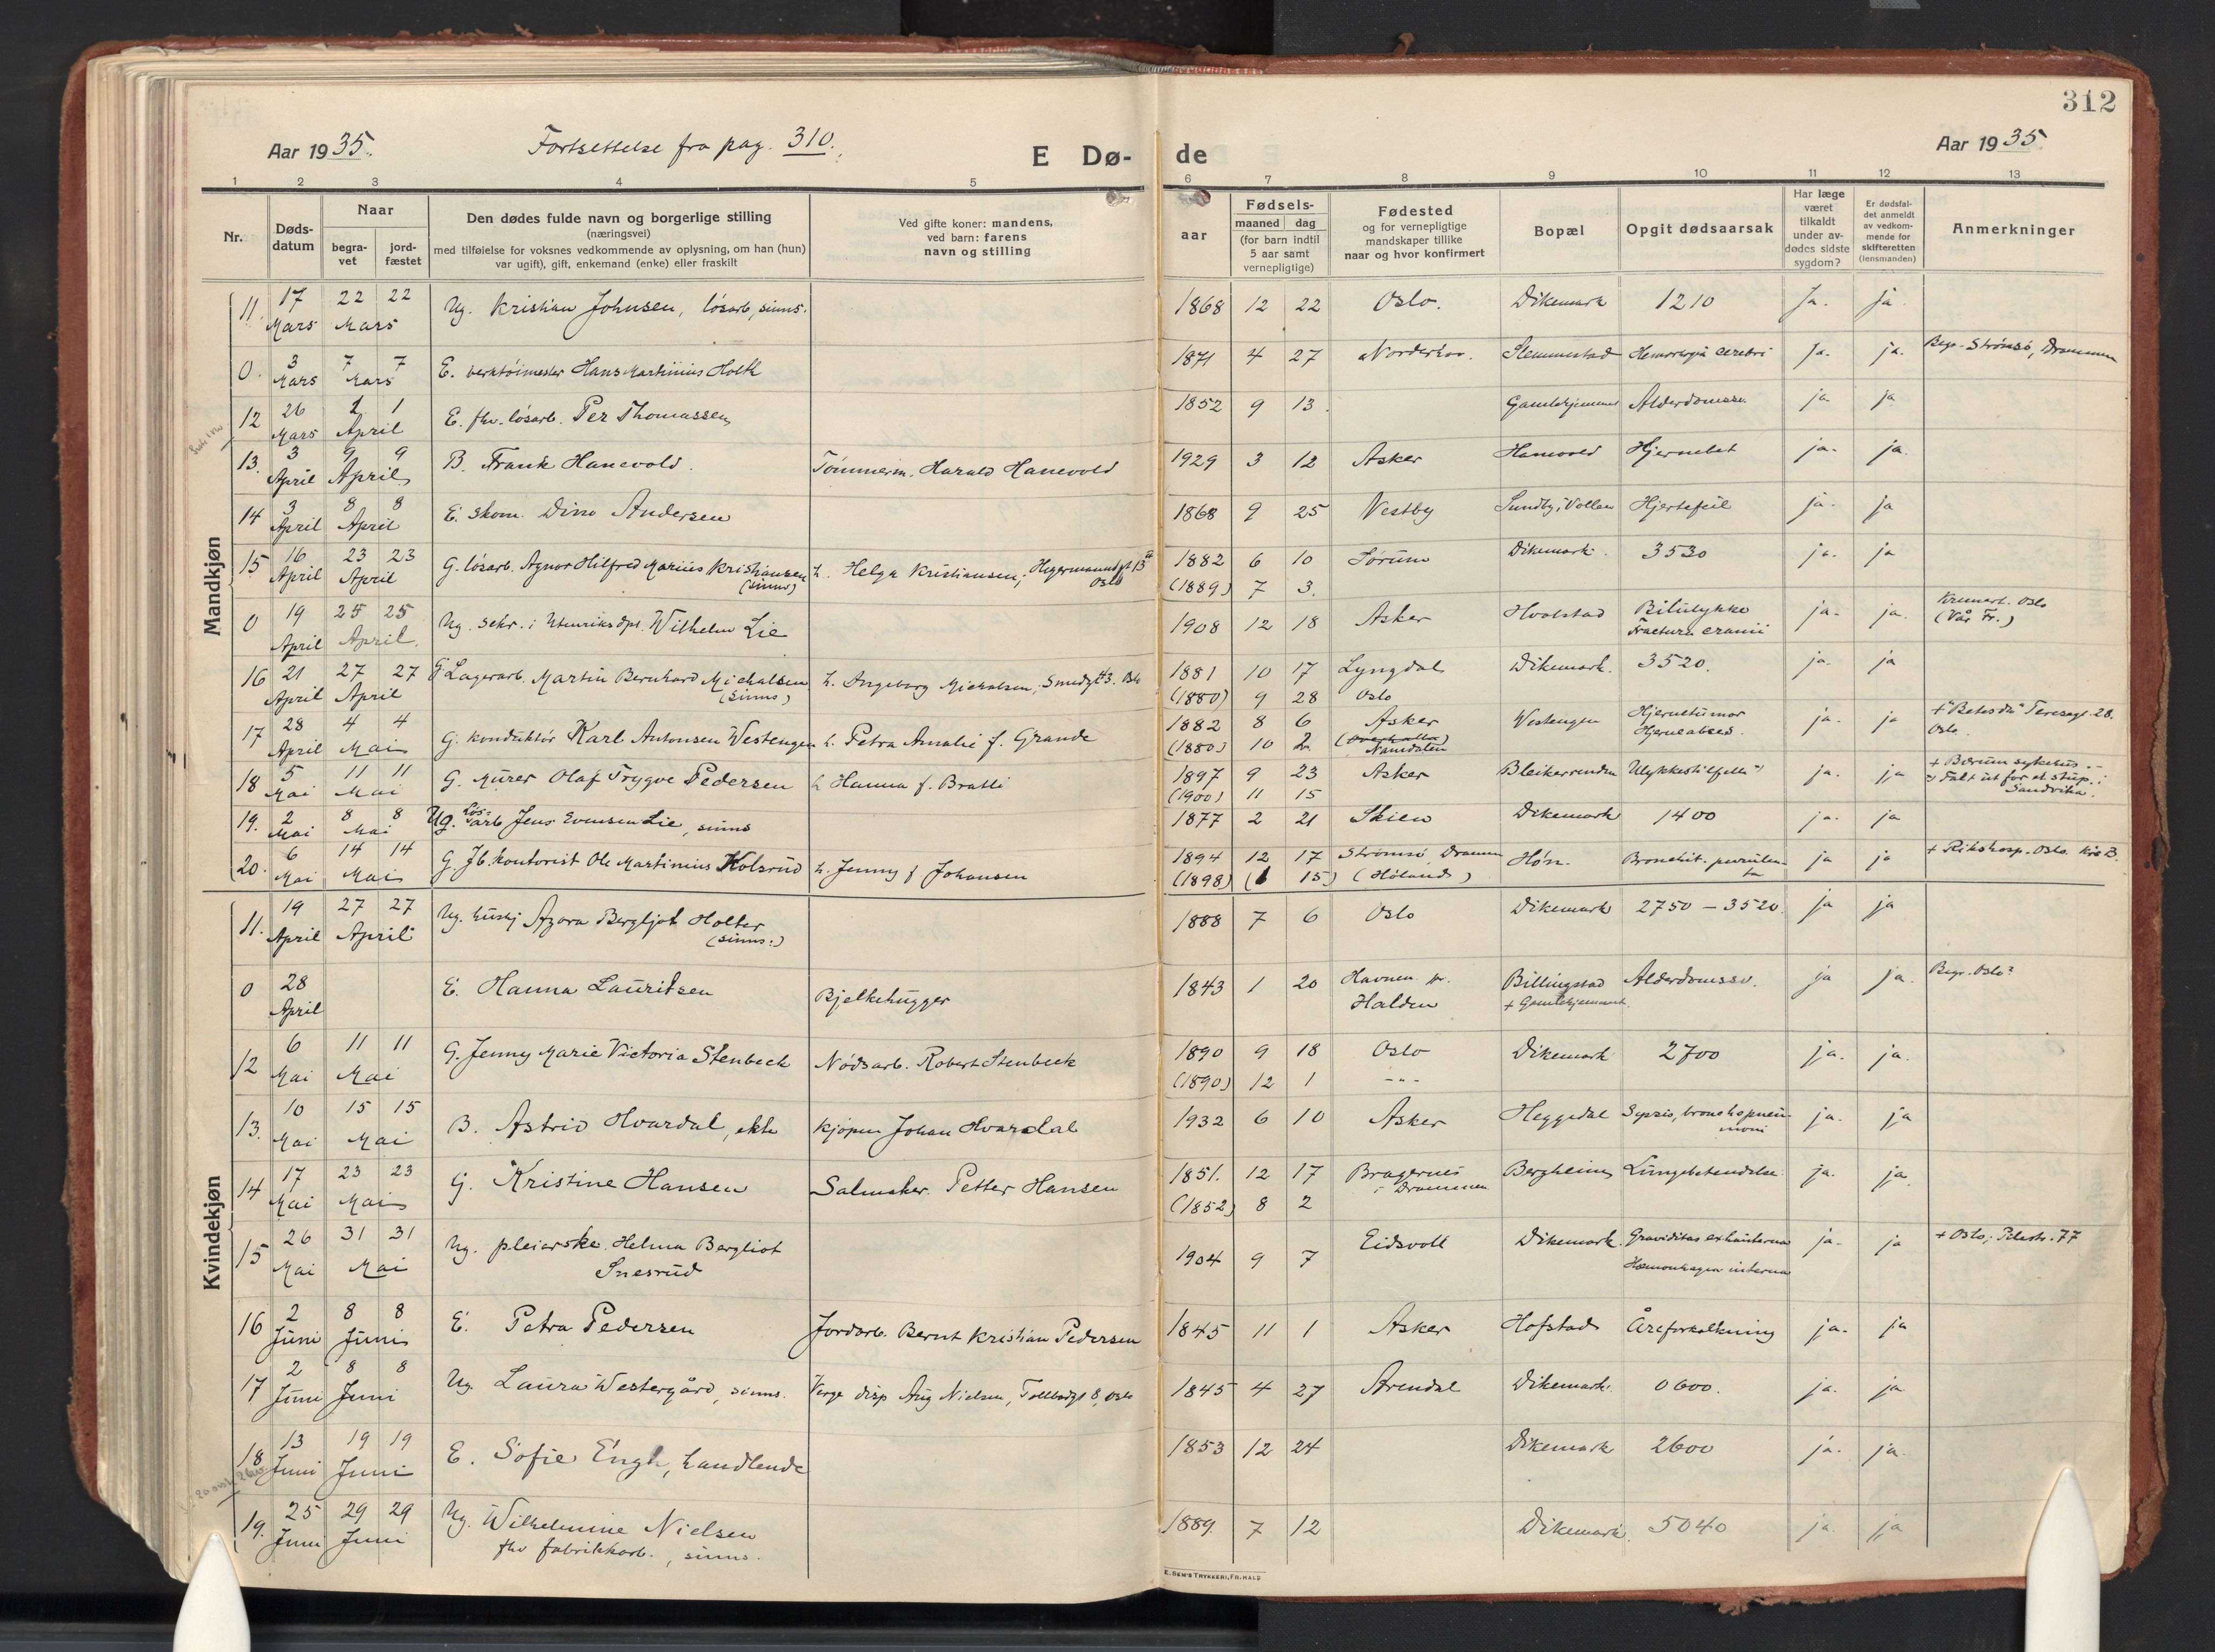 312
Aar 1935. Fortsettelse fra pag. 310. E Dø- de Aar 1935
1 2 3 4 5 6 7 8 9 10 11 12 13
Nr.
Døds-
datum
Naar
begra-
vet
jord-
fæstet
Den dødes fulde navn og borgerlige stilling
(næringsvei)
med tilføielse for voksnes vedkommende av oplysning, om han (hun)
var ugift), gift, enkemand (enke) eller fraskilt
Ved gifte koner: mandens,
ved barn: farens
navn og stilling
aar
Fødsels-
maaned dag
(for barn indtil
5 aar samt
vernepligtige)
Fødested
og for vernepligtige
mandskaper tillike
naar og hvor konfirmert
Bopæl
Opgit dødsaarsak
Har læge
været
tilkaldt
under av-
dødes sidste
sygdom?
Er dødsfal-
det anmeldt
av vedkom-
mende for
skifteretten
(lensmanden)
Anmerkninger
Mandkjøn
11. 17 22 22 Ug. Kristian Johnsen, løsarb, sinns. 1868 12 22 Oslo. Dikemark 1210 Ja. ja
Mars Mars
0. 3 7 7 E. verktøimester Hans Martinius Holth 1871 4 27 Norderhov. Slemmestad Hemorrhagia cerebri Ja. ja. Begr. Strømsø, Drammen
Mars Mars
12 26 1 1 E. fhv. løsarb. Per Thomassen 1852 9 13. Gamlehjemmet Alderdomssv. ja ja
Mars April
13. 3 9 9 B. Frank Hanevold. Tømmerm. Harald Hanevold 1929 3 12 Asker Hanevold Hjernebet ja. ja.
April April
14 3 8 8 E. skom. Dino Andersen 1868 9 25 Vestby Sundby, i Vollen Hjertefeil ja. ja
April April
15 16 23 23 G. løsarb. Agnar Hilfred Marius Kristiansen h. Helga Kristiansen; Hegermannsgt 13 1882 6 10 Sørum Dikemark. 3530 ja. ja
April April (sinns) Oslo (1889) 7 3.
0 19 25 25 Ug. sekr. i Utenriksdpt. Wilhelm Lie 1908 12 18 Asker Hvalstad Bilulykke ja. ja. Kremert. Oslo
April April. Fractura cranii (Vår Fr.)
16 21 27 27 G Lagerarb. Martin Bernhard Michalsen h. Ingeborg Michalsen, Smedgt 43. Oslo 1881 10 17 Lyngdal Dikemark. 3520. ja. ja
April April (sinns) (1880) 9 28 Oslo
17 28 4 4 G. konduktør Karl Antonsen Westengen h. Petra Amalie f. Grande 1882 8 6 Asker Westengen Hjernetumor ja. ja + "Betesda" Teresegt. 28.
April Mai (1880) 10 2 (Overhalla) Namdalen Hjerneabces. Oslo.
18 5 11 11 G. Murer Olaf Trygve Pedersen h Hanna f. Bratli 1897 9 23 Asker Bleikerrenden Ulykkestilfelle ja. ja + Bærum sykehus. –
Mai Mai (1900) 11 15 Falt ut for et stup. i
Sandvika.
19. 2 8 8 Ug. Løs-arb Jens Evensen Lie, sinns 1877 2 21 Skien Dikemark 1400 ja. ja
Mai Mai
20. 6 14 14 G. Jb. kontorist Ole Martinius Kolsrud h. Jenny f Johansen 1894 12 17 Strømsø, Dramm Høn. Bronchit. purulen- ja ja + Rikshosp. Oslo.
Mai Mai (1898) (1 15) (Høland) ta
Kvindekjøn
11. 19 27 27 Ug. hushj Azora Bergljot Holter 1888 7 6 Oslo Dikemark 2750 – 3520. ja ja
April April (sinns.)
0 28 E. Hanna Lauritsen Bjelkehugger 1843 1 20 Havnen pr. Billingstad Alderdomssv. ja ja. Begr. Oslo?
April Halden + Gamlehjemmet
12 6 11 11 G. Jenny Marie Victoria Stenbeck Nødsarb. Robert Stenbeck 1890 9 18 Oslo Dikemark 2700 ja. ja.
Mai Mai (1890) 12 1 -"-
13. 10 15 15 B. Astrid Hvardal, ekte kjøpm Johan Hvardal 1932 6 10 Asker Heggedal Sepsis, bronchopneu- ja. ja
Mai Mai moni
14 17 23 23 G. Kristine Hansen Salmaker. Petter Hansen 1851. 12 17 Bragernes Bergheim Lungebetendelse. ja. ja.
Mai Mai (1852) 8 2 i Drammen
15 26 31 31 Ug. pleierske. Helma Bergliot 1904 9 7 Eidsvoll Dikemark. Graviditas extrauterina ja. ja + Oslo, Pilestr. 77
Mai Mai Snesrud Hæmorrhagia interna
16 2 8 8 E. Petra Pedersen Jordarb. Bernt Kristian Pedersen 1845 11 1 Asker Hofstad Åreforkalkning ja. ja
Juni Juni
17 2 8 8 Ug. Laura Westergård, sinns. Verge disp Aug Nielsen, Tollbodgt 8, Oslo 1845 4 27 Arendal Dikemark. 0600. ja. ja
Juni Juni
18 13 19 19 E. Sofie Engh, handlende 1853 12 24 Dikemark 2600 ja. ja.
Juni Juni
19. 25 29 29 Ug. Wilhelmine Nielsen 1889. 7 12 Dikemark. 5040 ja. ja
Juni Juni fhv fabrikkarb., sinns.
E. SEM'S TRYKKERI, FR.HALD